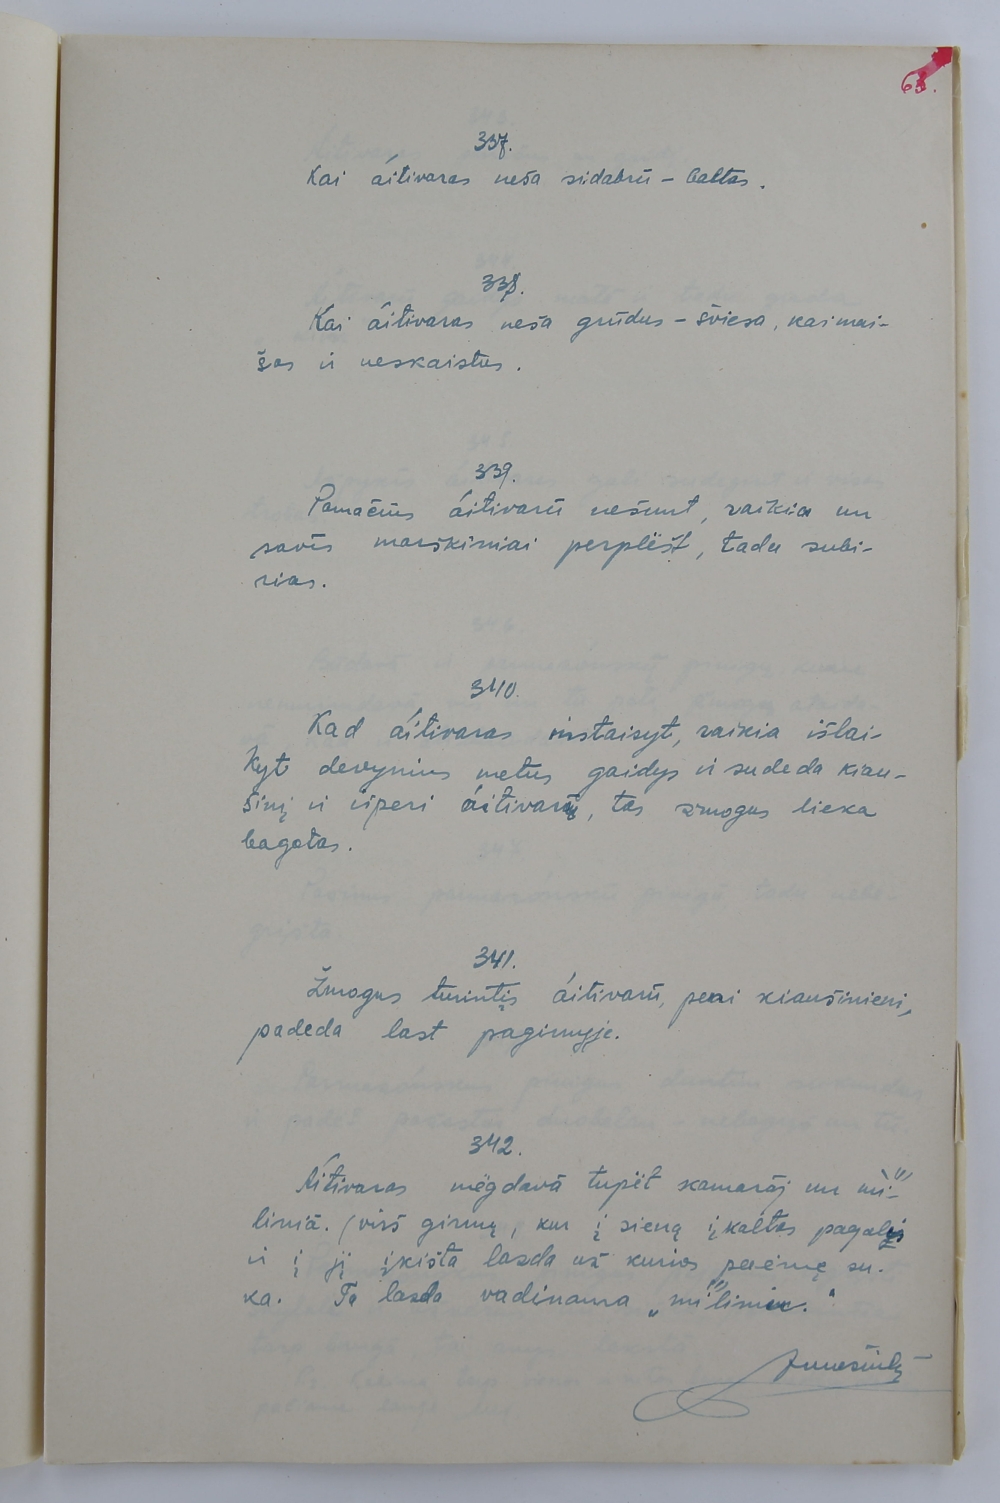 68.
337.
Kai áitivaras neša sidabrū – baltas.
338.
Kai áitivaras neša grūdus – šviesa, kai mai-
šos ir neskaistus.
339.
Pamačius áitivarū nešunt, raikia un
savis marškiniai perplėšt, tada subi-
rias.
340.
Kad áitivaras instaisyt, raikia išlai-
kyt devynius metus gaidys ir sudeda kiau-
šinį ir išperi áitivarų, tas žmogus lieka
bagotas.
341.
Žmogus turintis áitivarū, perai kiaušinieni,
padeda last pagirnyje.
342.
Áitivaras mėgdavā tupėt kamarāj un mi-
liniā. (virš girnų, kur į sieną įkaltas pagalys
ir į jį įkišta lazda už kurios paėmę su-
ka. Ta lazda vadinama „milinu."